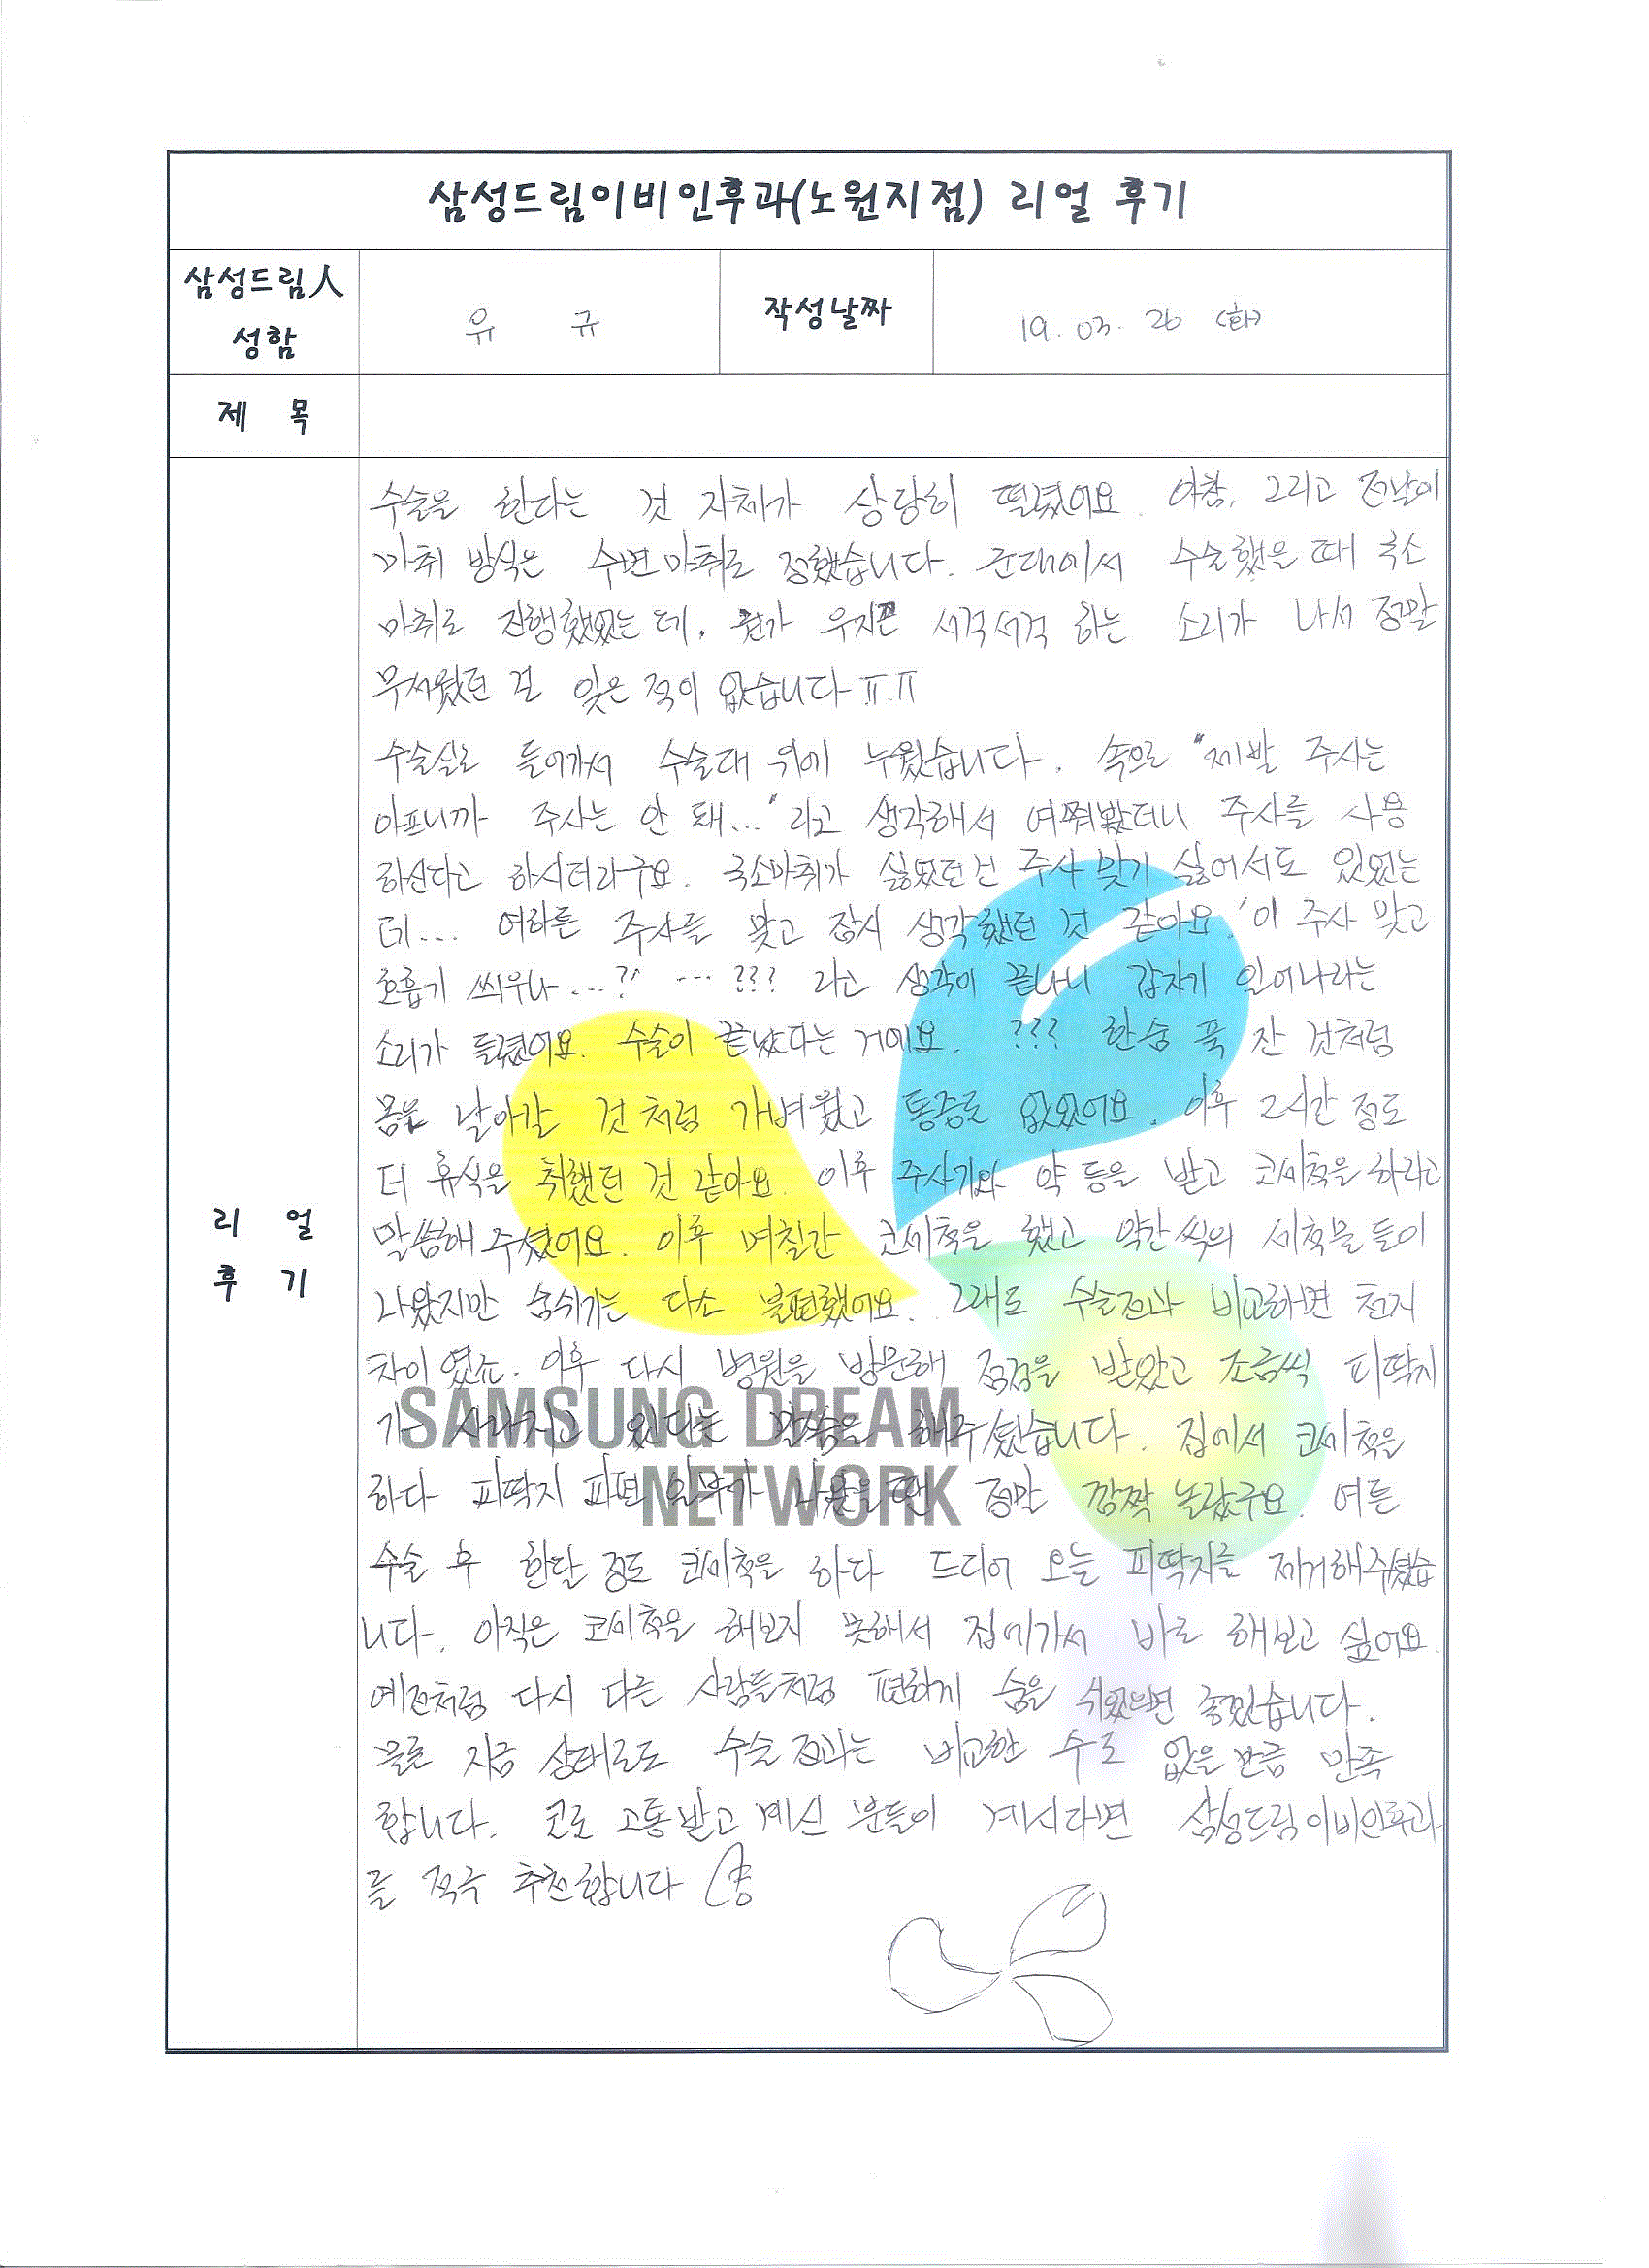 삼성드림이비인후과(노원지점) 리얼 후기
삼성드림人
성함
유 규
작성날짜
19. 03. 26 (화)
제 목
수술을 한다는 것 자체가 상당히 떨렸어요. 아참, 그리고 전날이
마취 방식은 수면마취로 정했습니다. 군대에서 수술했을 때 국소
마취로 진행했었는데, 뭔가 우지끈 서걱서걱 하는 소리가 나서 정말
무서웠던 걸 잊은 적이 없습니다ㅠ.ㅠ
수술실로 들어가서 수술대 위에 누웠습니다. 속으로 "제발 주사는
아프니까 주사는 안 돼..."라고 생각해서 여쭤봤더니 주사를 사용
하신다고 하시더라구요. 국소마취가 싫었던 건 주사 맞기 싫어서도 있었는
데... 여하튼 주사를 맞고 잠시 생각했던 것 같아요. '이 주사 맞고
호흡기 씌우나...?' ...??? 라고 생각이 끝나니 갑자기 일어나라는
소리가 들렸어요. 수술이 끝났다는 거에요. ??? 한숨 푹 잔 것처럼
몸은 날아갈 것처럼 가벼웠고 통증도 없었어요. 이후 2시간 정도
더 휴식을 취했던 것 같아요. 이후 주사기와 약 등을 받고 코세척을 하라고
말씀해 주셨어요. 이후 며칠간 코세척을 했고 약간씩의 세척물들이
나왔지만 숨쉬기는 다소 불편했어요. 그래도 수술전과 비교하면 천지
차이였죠. 이후 다시 병원을 방문해 점검을 받았고 조금씩 피딱지
가 사라지고 있다는 말씀을 해주셨습니다. 집에서 코세척을
하다 피딱지 파편 일부가 나왔을 땐 정말 깜짝 놀랐구요. 여튼
수술 후 한달 정도 코세척을 하다 드디어 오늘 피딱지를 제거해주셨습
니다. 아직은 코세척을 해보지 못해서 집에가서 바로 해보고 싶어요.
예전처럼 다시 다른 사람들처럼 편하게 숨을 쉬었으면 좋겠습니다.
물론 지금 상태로도 수술 전과는 비교할 수도 없을 만큼 만족
합니다. 코로 고통받고 계신 분들이 계시다면 삼성드림이비인후과
를 적극 추천합니다
리 얼
후 기
SAMSUNG DREAM
NETWORK